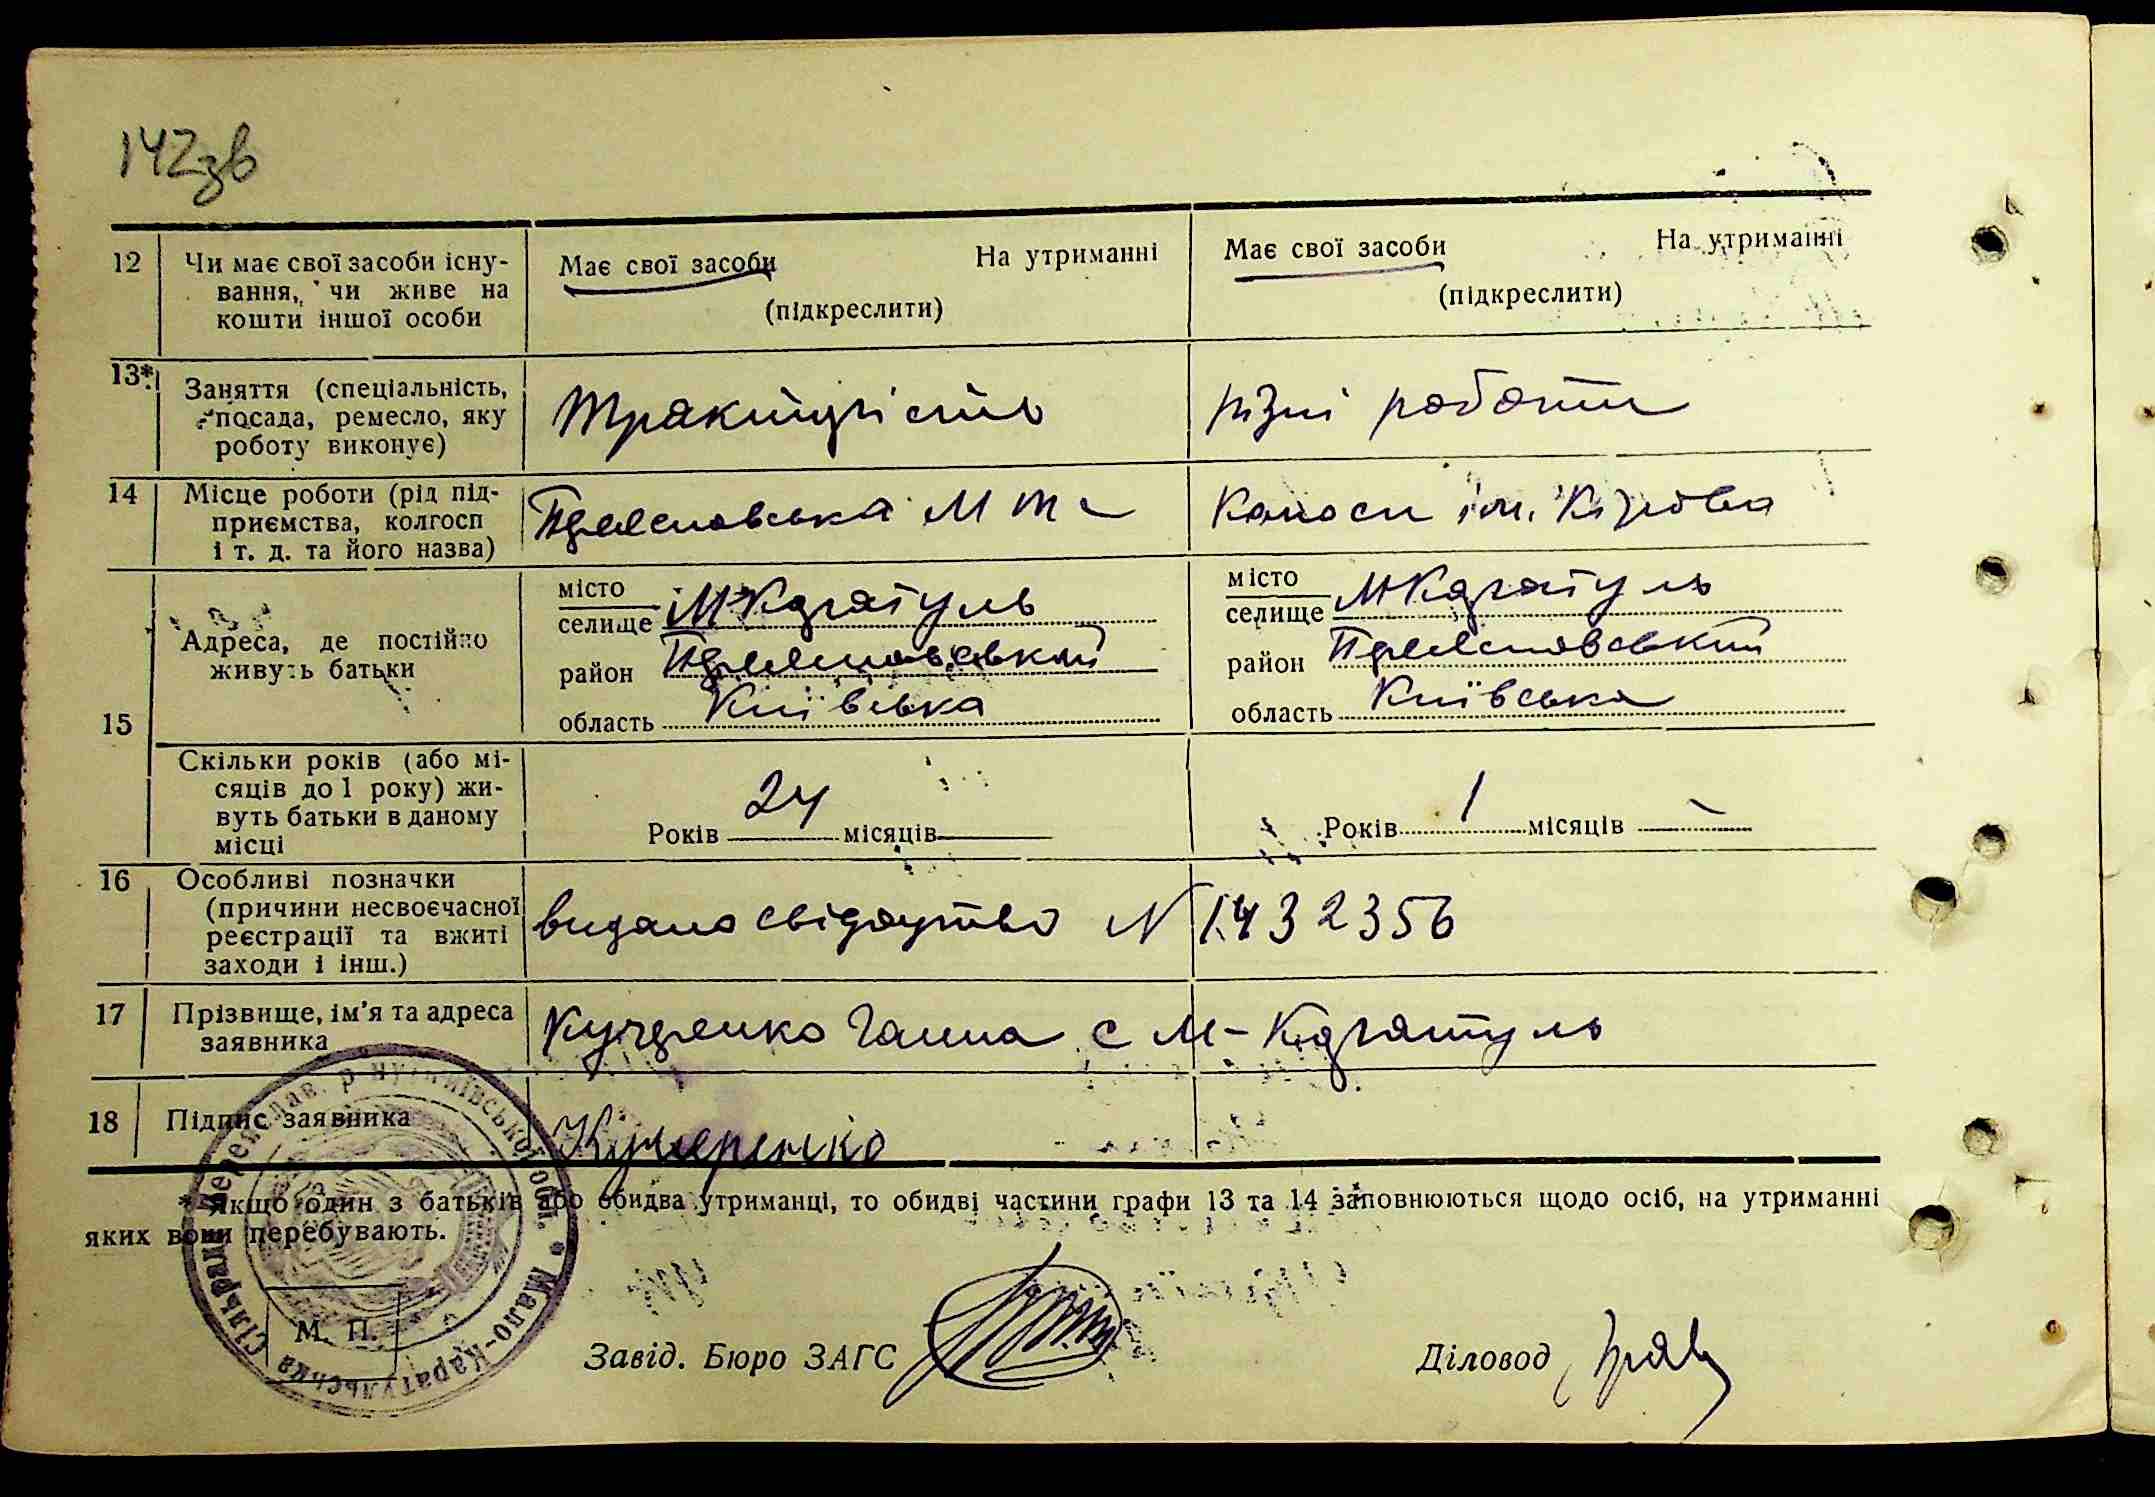 142зв
12 Чи має свої засоби існу-
вання, чи живе на
кошти іншої особи
Має свої засоби На утриманні
(підкреслити)
Має свої засоби На утриманні
(підкреслити)
13* Заняття (спеціальність,
посада, ремесло, яку
роботу виконує)
різні роботи
14 Місце роботи (рід під-
приємства, колгосп
і т. д. та його назва)
МТС
ім. Кірова
15 Адреса, де постійно
живуть батьки
місто
селище М Каратуль
район
область Київська
місто
селище М Каратуль
район
область Київська
Скільки років (або мі-
сяців до 1 року) жи-
вуть батьки в даному
місці
Років 24 місяців
Років 1 місяців —
16 Особливі позначки
(причини несвоєчасної
реєстрації та вжиті
заходи і інш.)
видано свідоцтво N 1432356
17 Прізвище, ім'я та адреса
заявника
Ганна с М-Каратуль
18 Підпис заявника
* Якщо один з батьків або обидва утриманці, то обидві частини графи 13 та 14 заповнюються щодо осіб, на утриманні
яких вони перебувають.
М. П.
Завід. Бюро ЗАГС
Діловод
Мало-Каратульська Сільрада